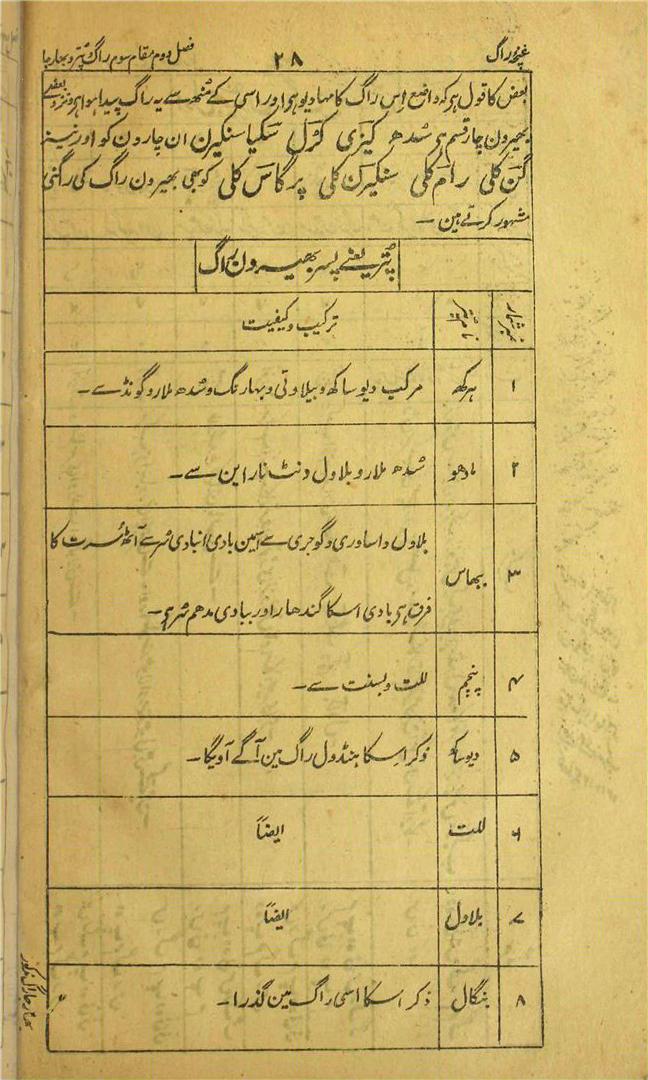 غنچۂ راگ ۲۸ فصل دوم مقام سوم راگ پتر و بھارجا
بعض کا قول ہی کہ واضع اِس راگ کا مہادیو ہی اور اسی کے مُنھ سے یہ راگ پیدا ہوا ہی نزد بعضے
بھیرون چار قسم ہی شدھ کیزی کرل سکیا سنکیرن ان چارون کو اور نیز
گن کلی رام کلی سنکیرن کلی پرگاس کلی کو بھی بھیرون راگ کی راگنی
مشہور کرتے ہین ۔
پُتر یعنے پسر بھیرون راگ
نمبر شمار نام پتر ترکیب و کیفیت
۱ ہرکھ مرکب دیوساکھ و بیلاوتی و بہار نگ و شدھ ملار و گونڈ سے ۔
۲ مادھو شدھ ملار و بلاول و نٹ ناراین سے ۔
۳ ببھاس بلاول و اساوری و گوجری سے اسمین بادی انبادی سُر سے آٹھ سُرت کا
فرق ہی بادی اسکا گندھار اور ببادی مدھم سُر ہی ۔
۴ پنچم للت و بسنت سے ۔
۵ دیوساکھ ذکر اِسکا ہنڈول راگ مین آگے آویگا ۔
۶ للت ایضاً
۷ بلاول ایضاً
۸ بنگال ذکر اسکا اسی راگ مین گذرا ۔